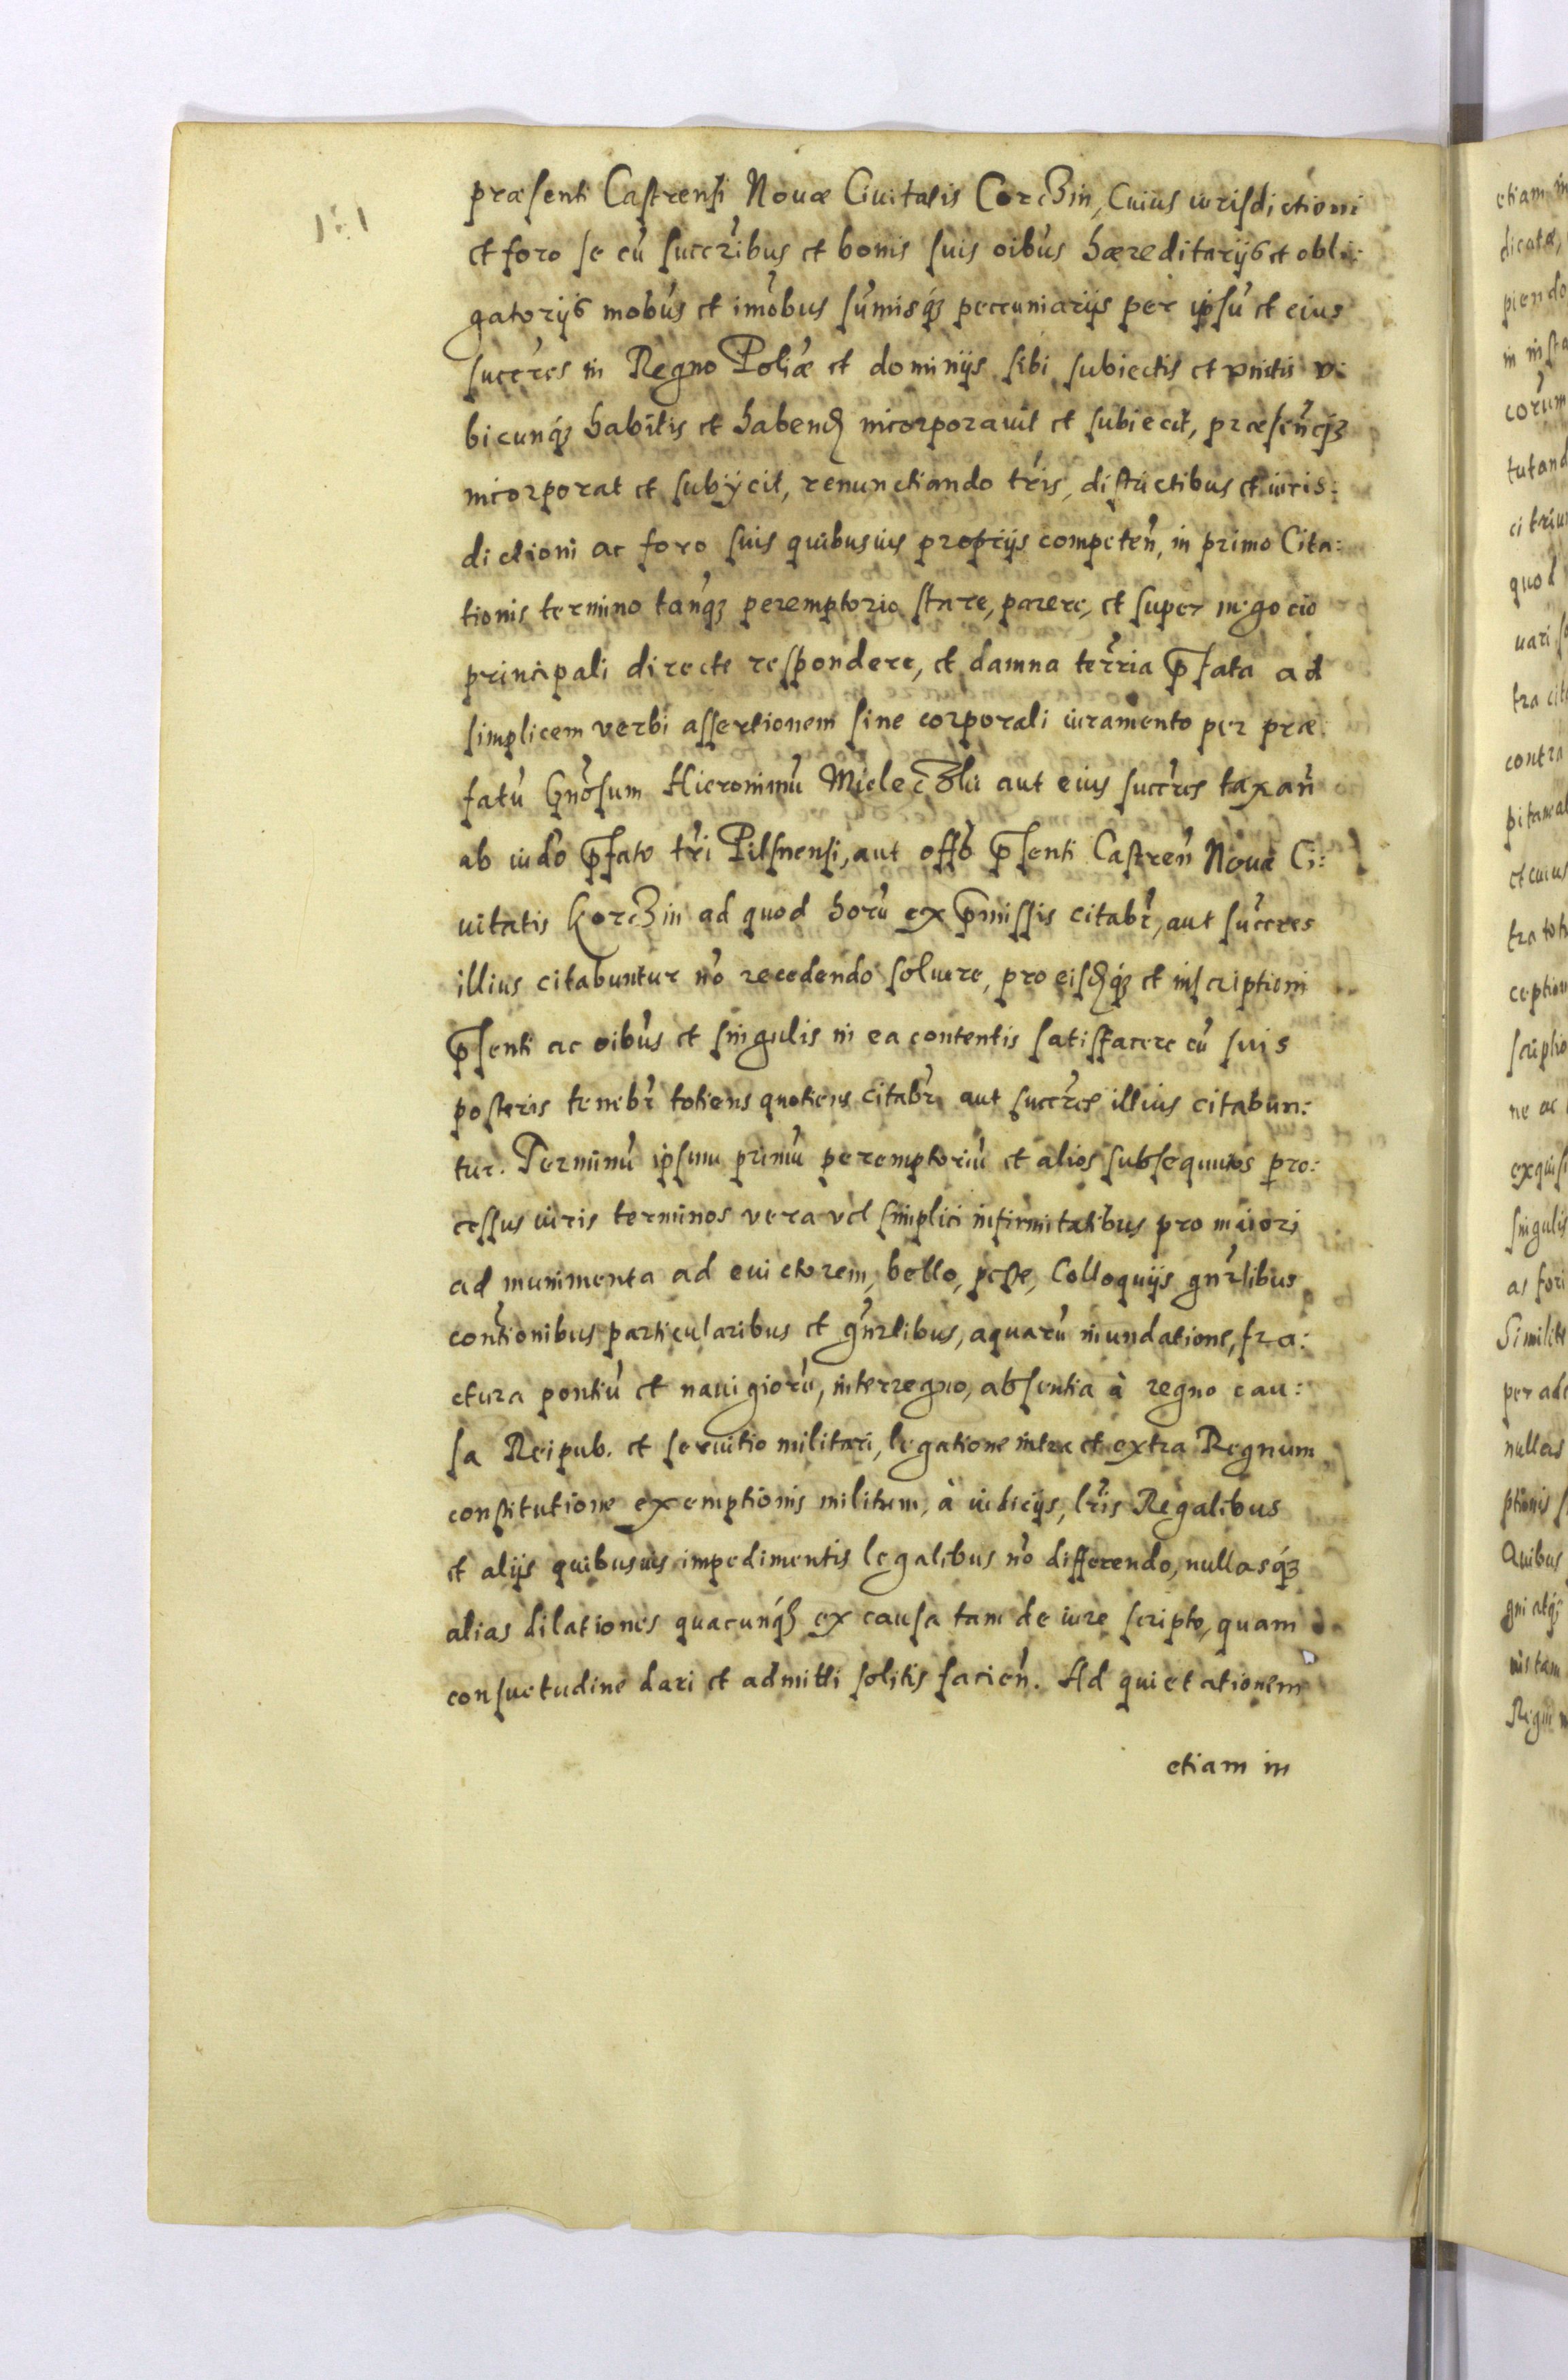 præsenti Castrensi Nouæ Ciuitatis Corczin, Cuius iurisdictioni
et foro se cū succr̃ibus et bonis suis oĩbus hæreditarijs et obli:
gatorijs mobũs et im̃obus sum̃isq́ʒ peccuniarijs per ipsū et eius
succr̃es in Regno Poliæ et dominijs sibi subiectis et vnitis v:
bicunq́ʒ habitis et habenđ incorporauit et subiecit, præsen̄q́ʒ
incorporat et subijcit, renunctiando tr̃is, districtibus et iuris:
dictioni ac foro suis quibusuis proprijs competen̄, in primo Cita:
tionis termino tanq́ʒ peremptorio stare, parere, et super negocio
principali directe respondere, et damna terr̃ia p̄fata ad
simplicem verbi assertionem sine corporali iuramento per præ:
fatū Gñosum Hieronimū Mieleczki aut eius succr̃es taxan̄
ab iud̃o p̄fato tr̃i Pilsnensi, aut off̃o p̄senti Castren̄ Nouæ Ci:
uitatis Korczin ad quod horū ex p̄missis citabr̃, aut succr̃es
illius citabuntur nō recedendo soluere, pro eisđq́ʒ et inscriptioni
p̄senti ac oĩbus et singulis in ea contentis satisfacere cū suis
posteris tenebr̃ totiens quotiens citabr̃ aut succr̃es illius citabun:
tur. Terminū ipsum primū peremptoriū et alios subsequutos pro:
cessus iuris terminos vera vel simplici infirmitatibus pro maiori
ad munimenta ad euictorem, bello, peste, Colloquijs gnr̃libus
contionibus particularibus et gnr̃libus, aquarū inundatione, fra:
ctura pontiū et nauigiorū, interregno, absentia à regno cau:
sa Reipub. et seruitio militari, legatione intra et extra Regnum
constitutione exemptionis militum, à iudicijs, lr̃is Regalibus
et alijs quibusuis impedimentis legalibus nō differendo, nullasq́ʒ
alias dilationes quacunq́ʒ ex causa tam de iure scripto, quam
consuetudine dari et admitti solitis facien̄. Ad quietationem
etiam in